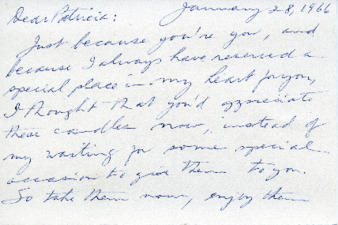 Dear Patricia: January 28, 1966
Just because you're you, and
because I always have reserved a
special place in my heart for you,
I thought that you'd appreciate
these candles now, instead of
my waiting for some special
occasion to give them to you.
So take them now, enjoy them